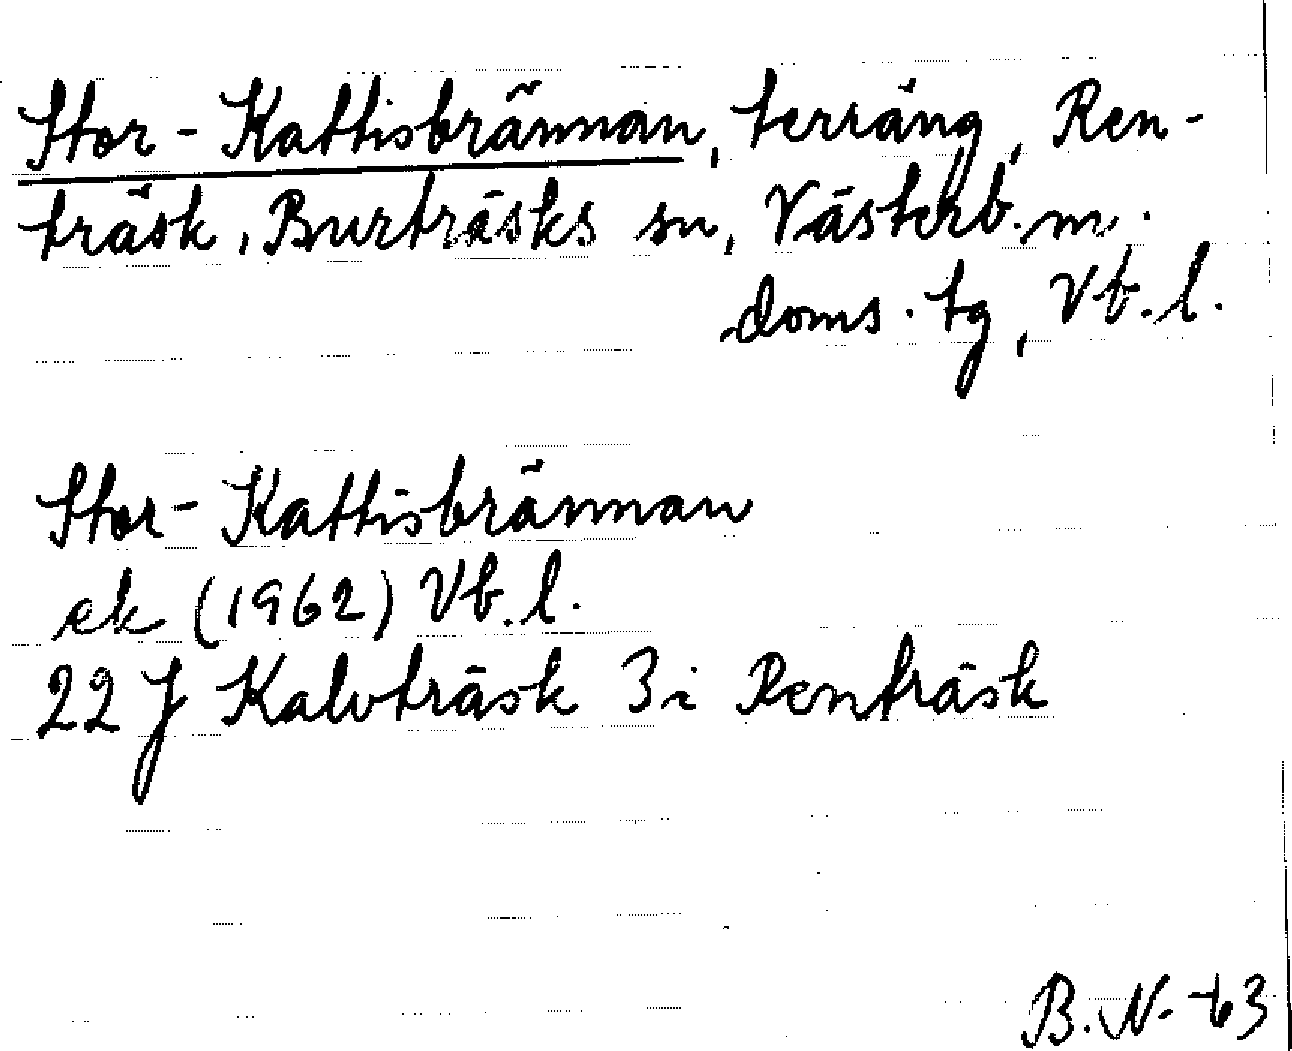 Stor-Kattisbrännan, terräng, Ren-
träsk, Burträsks sn, Västerb. m.
doms. tg, Vb. l.
Stor-Kattisbrännan
ek (1962) Vb. l.
22 J Kalvträsk 3i Renträsk
B. N. -63